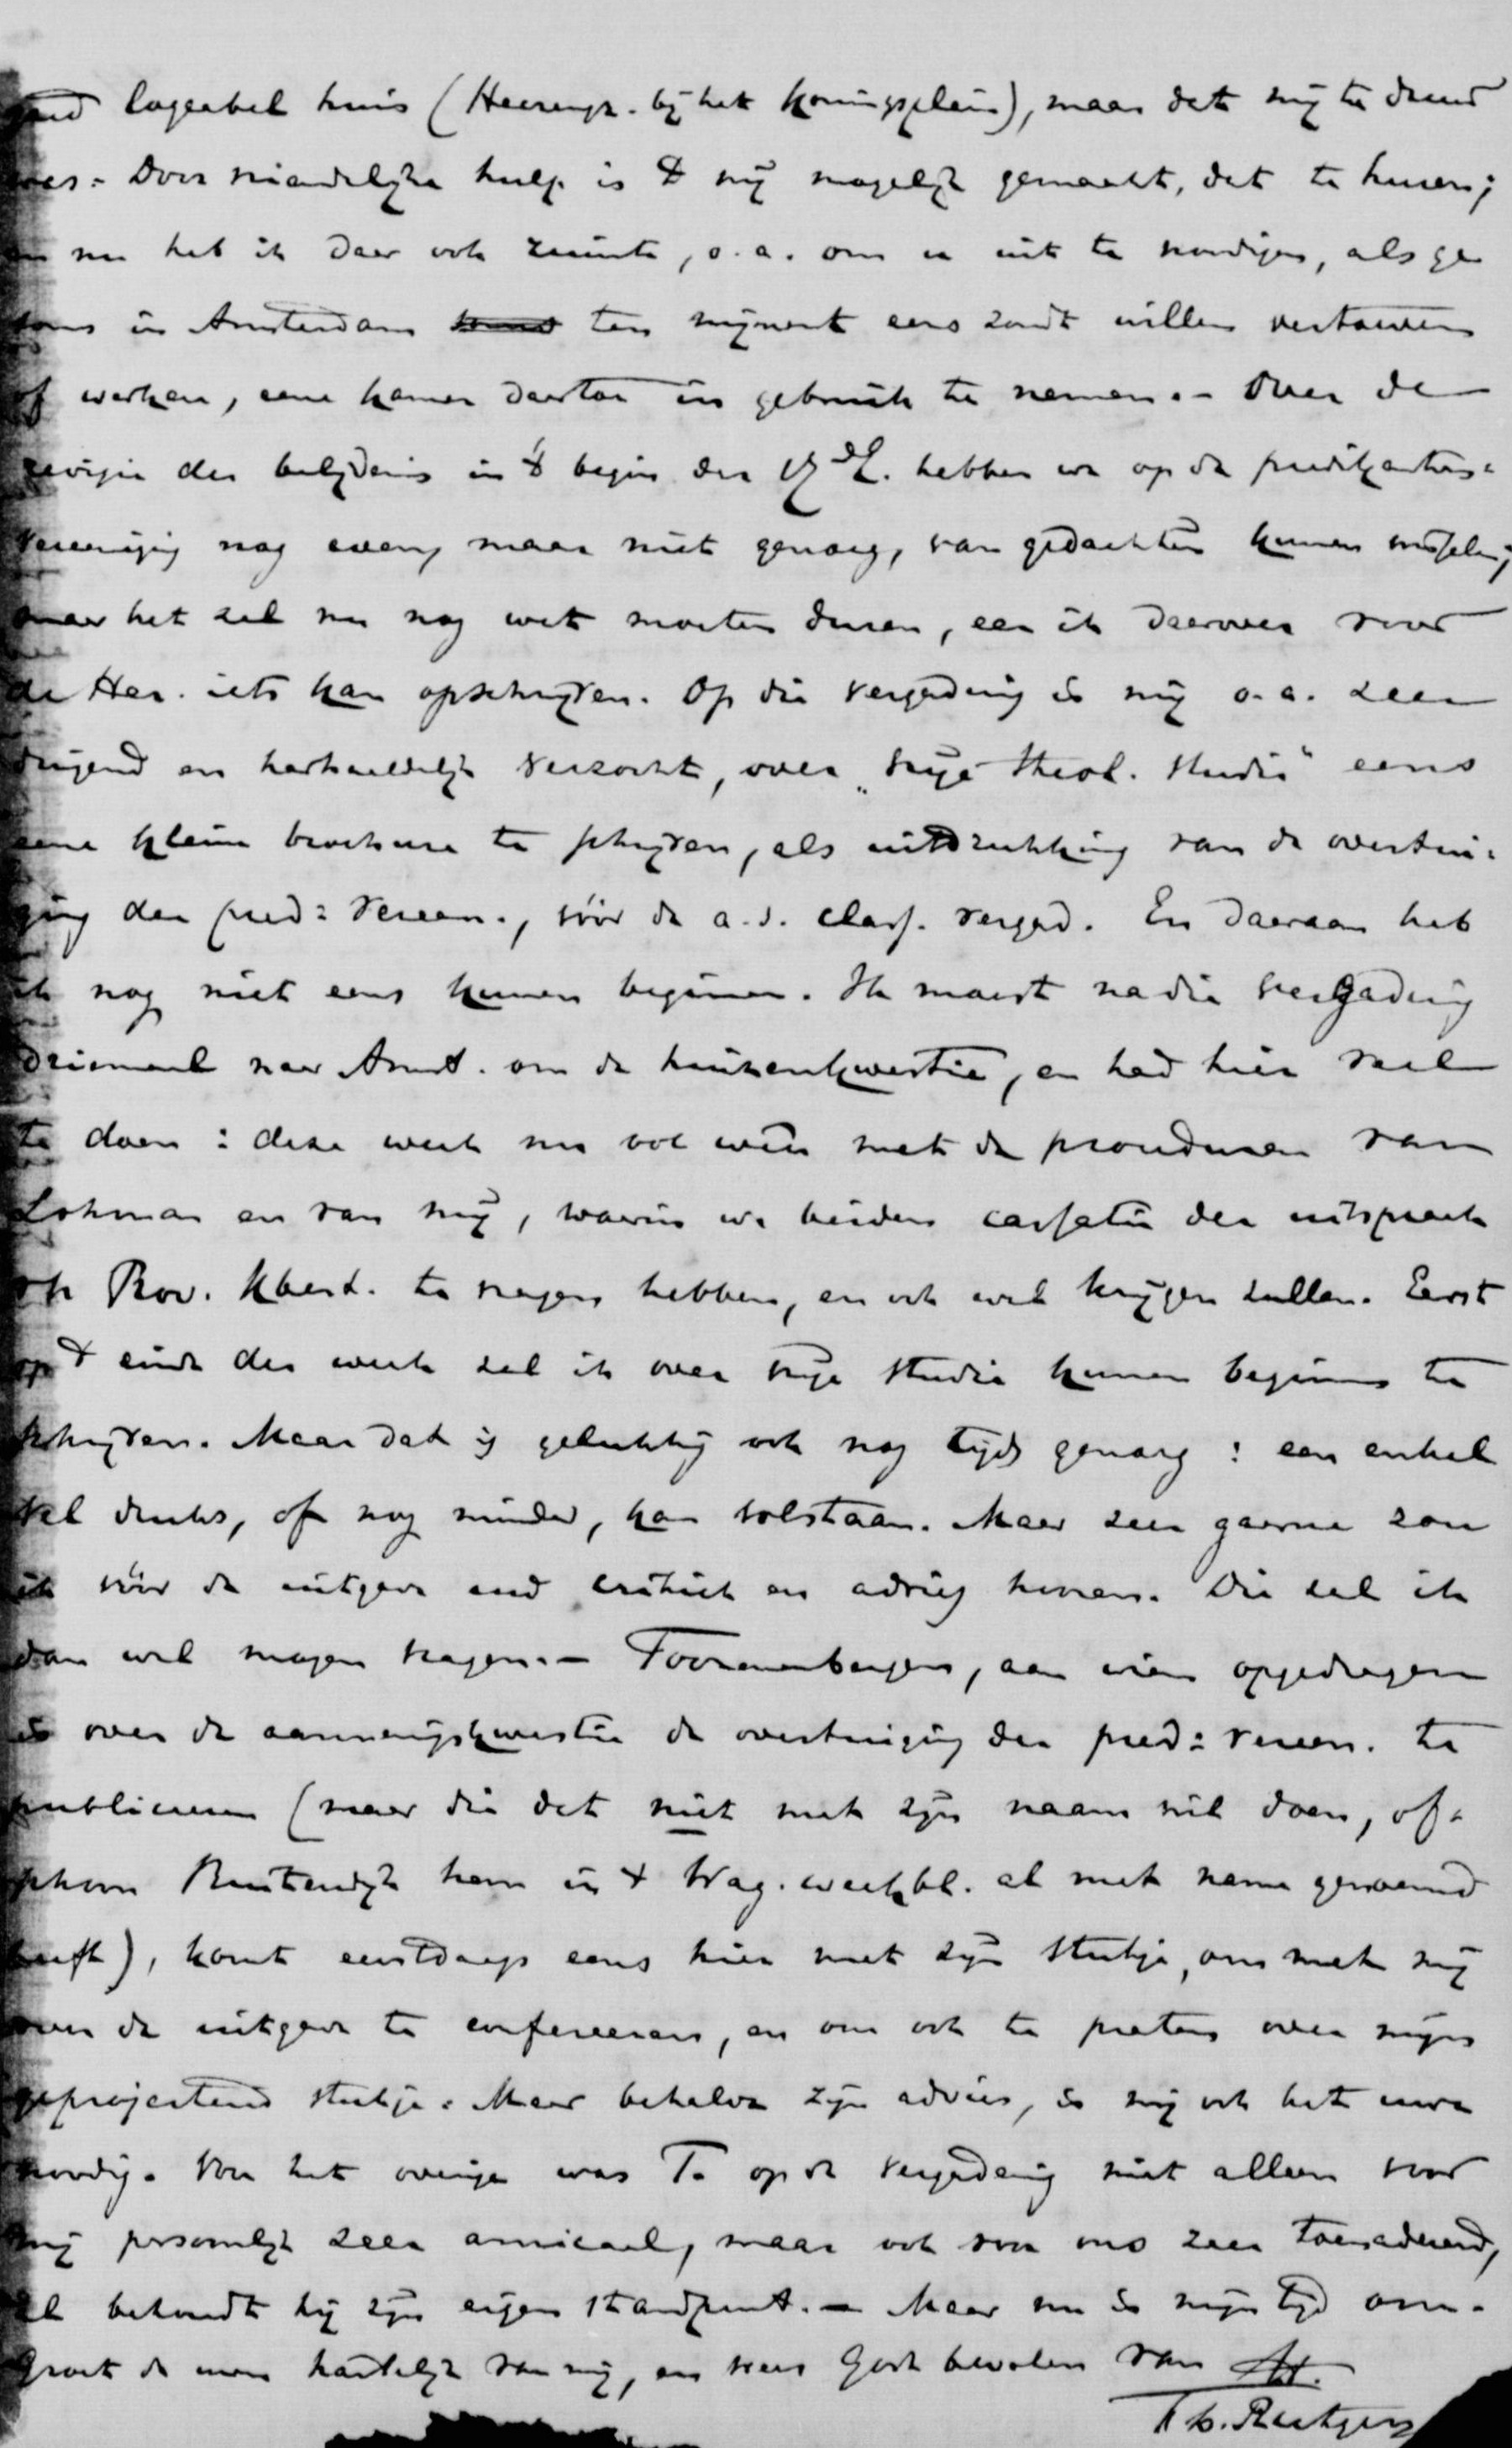 goed logeabel huis (Heerengr. bij het Koningsplein), maar dat mij te duur
was. Door vriendelijke hulp is 't mij mogelijk gemaakt, dat te huren;
en nu heb ik daar ook ruimte, o.a. om u uit te noodigen, als ge
soms in Amsterdam ten mijnent eens zoudt willen vertoeven
of werken, eene kamer daartoe in gebruik te nemen. – Over de
revisie der belijdenis in 't begin der 17de E. hebben we op de predikanten-
vereeniging nog even, maar niet genoeg, van gedachten kunnen wisselen;
maar het zal nu nog wat moeten duren, eer ik daarover voor
de Her. iets kan opschrijven. Op die vergadering is mij o.a. zeer
dringend en herhaaldelijk verzocht, over „vrije theol. studie" eens
eene kleine brochure te schrijven, als uitdrukking van de overtui-
ging der pred: vereen., vóór de a.s. class. vergad. En daaraan heb
ik nog niet eens kunnen beginnen. Ik moest na die vergadering
driemaal naar Amst. om de huizenkwestie, en had hier veel
te doen: deze week nu ook weêr met de procedures van
Lohman en van mij, waarin we beiden cassatie der uitspraak
v/h Prov. Kbest. te vragen hebben, en ook wel krijgen zullen. Eerst
op 't einde der week zal ik over vrije studie kunnen beginnen te
schrijven. Maar dat is gelukkig ook nog tijds genoeg: een enkel
vel druks, of nog minder, kan volstaan. Maar zeer gaarne zou
ik vóór de uitgave uwe critiek en advies hooren. Die zal ik
dan wel mogen vragen. – Toorenenbergen, aan wien opgedragen
is over de aannemingskwestie de overtuiging der pred: vereen. te
publiceeren (maar die dat niet met zijn naam wil doen, of-
schoon Buitendijk hem in 't Wag. weekbl. al met name genoemd
heeft), komt eerstdaags eens hier met zijn stukje, om met mij
over de uitgave te confereeren, en om ook te praten over mijn
geprojecteerd stukje. Maar behalve zijn advies, is mij ook het uwe
noodig. Voor het overige was T. op de vergadering niet alleen voor
mij persoonlijk zeer amicaal, maar ook voor ons zeer toenaderend,
al behoudt hij zijn eigen standpunt. – Maar nu is mijn tijd om.
Groet de uwen hartelijk van mij, en wees Gode bevolen van tt.
F. L. Rutgers